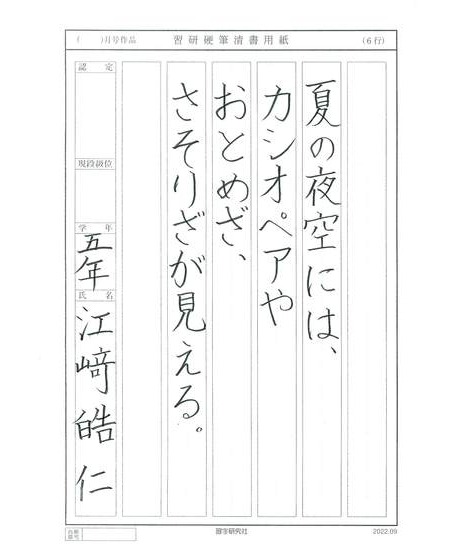 (　)月号作品　習研硬筆清書用紙　(6行)
夏の夜空には、
カシオペアや
おとめざ、
さそりざが見える。
認定
現段級位
学年
五年
氏名
江﨑皓仁
習字研究社
2022.09